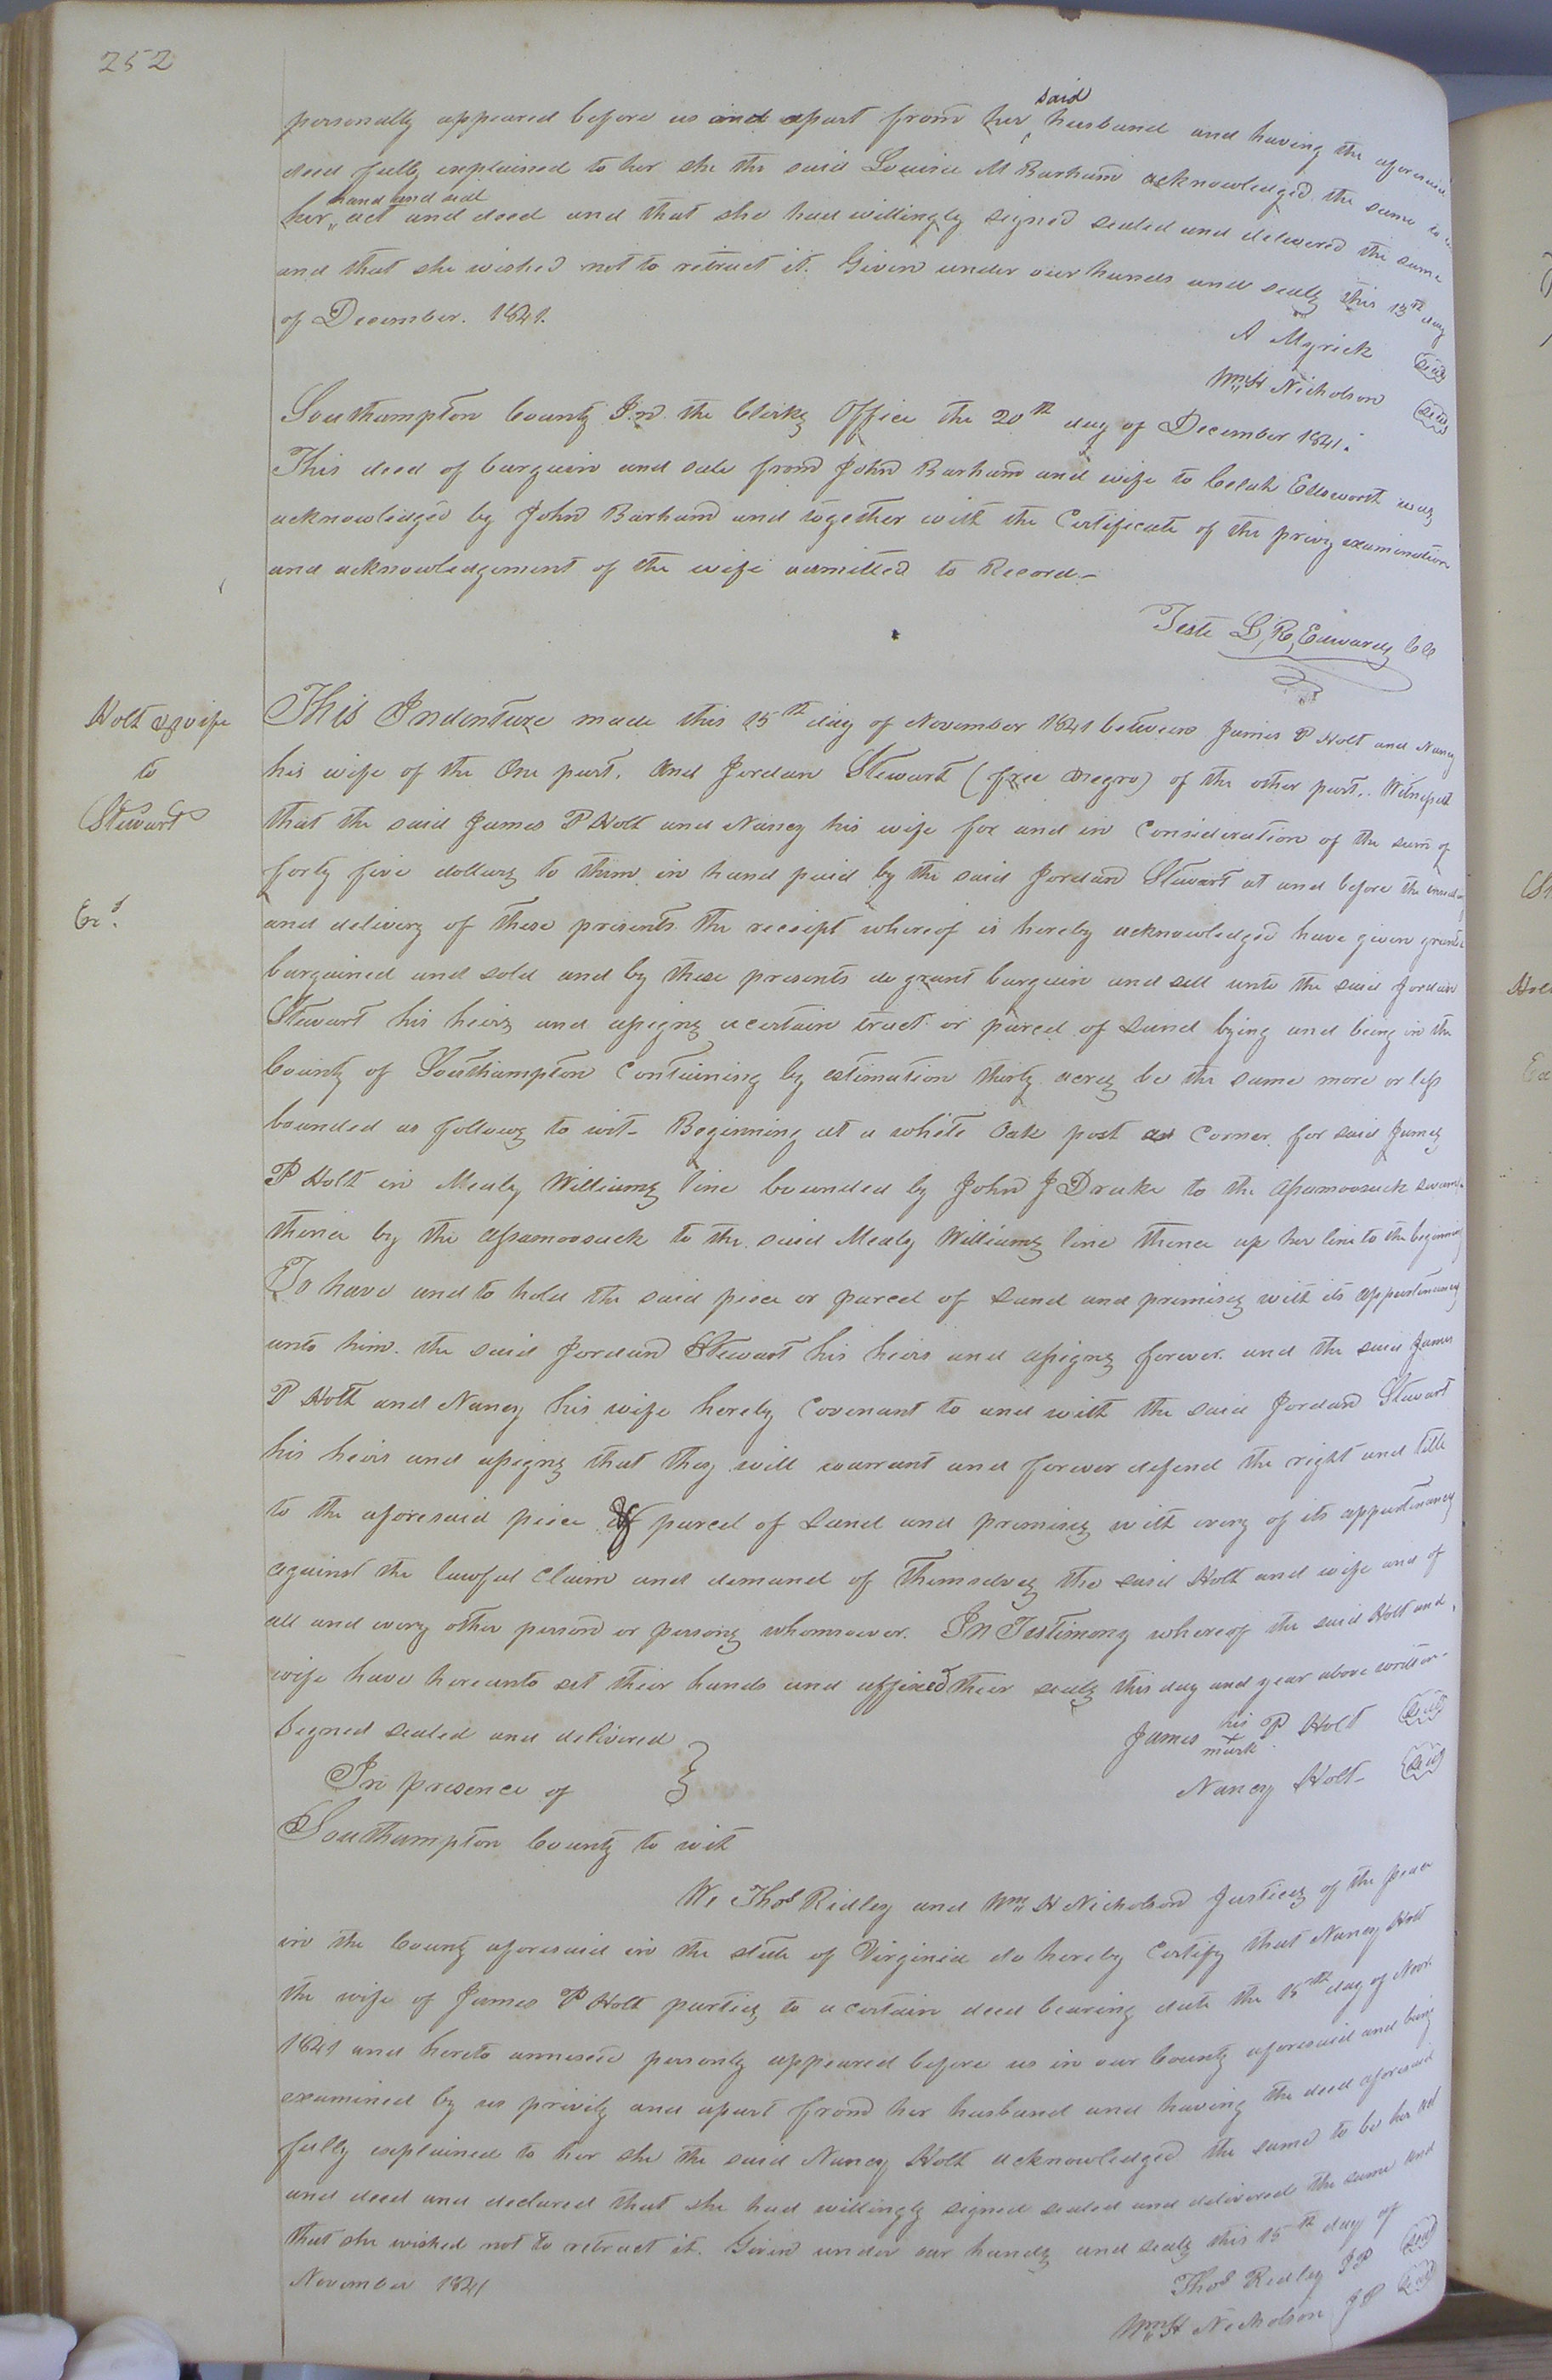 252
personally appeared before us and apart from her said husband and having the aforesaid
deed fully explained to her she the said Louisa M Barham acknowledged the same to be
her hand and seal act and deed and that she had willingly signed sealed and delivered the same
and that she wished not to retract it. Given under our hands and seals this 13th day
of December. 1841.
A Myrick Seal
Wm H Nicholson Seal
Southampton County In the Clerks Office the 20th day of December 1841.
This deed of bargain and sale from John Barham and wife to Celah Edsworth was
acknowledged by John Barham and together with the Certificate of the privy examination
and acknowledgement of the wife admitted to Record-
Teste L, R, Edwards CC
Holt & wife
to
Stewart
Exd.
This Indenture made this 15th day of November 1841 between James P Holt and Nancy
his wife of the One part. And Jordan Stewart (free negro) of the other part. Witnesseth
that the said James P Holt and Nancy his wife for and in Consideration of the sum of
forty five dollars to them in hand paid by the said Jordan Stewart at and before the
and delivery of these presents the receipt whereof is hereby acknowledged have given granted
bargained and sold and by these presents do grant bargain and sell unto the said Jordan
Stewart his heirs and assigns a certain tract or parcel of Land lying and being in the
County of Southampton Containing by estimation thirty acres be the same more or less
bounded as follows to wit- Beginning at a white Oak post as Corner for said James
P Holt in Mealy Williams line bounded by John J Drake to the Assamoosack swamp
thence by the Assamoosack to the said Mealy Williams line thence up her line to the beginning
To have and to hold the said piece or parcel of Land and premises with its appurtenances
unto him. the said Jordan Stewart his heirs and assigns forever. and the said James
P Holt and Nancy his wife hereby Covenant to and with the said Jordan Stewart
his heirs and assigns that they will warrant and forever defend the right and title
to the aforesaid piece of parcel of Land and premises with every of its appurtenances
against the lawful Claim and demand of Themselves the said Holt and wife and of
all and every other person or persons whomsoever. In Testimony whereof the said Holt and
wife have hereunto set their hands and affixed their seals this day and year above written-
Signed sealed and delivered
In presence of
James his + mark P Holt Seal
Nancy Holt- Seal
Southampton County to wit
We Thos Ridley and Wm H Nicholson Justices of the peace
in the County aforesaid in the state of Virginia do hereby Certify that Nancy Holt
the wife of James P Holt parties to a certain deed bearing date the 15th day of Novr
1841 and hereto annexed personly appeared before us in our County aforesaid and being
examined by us privily and apart from her husband and having the deed aforesaid
fully explained to her she the said Nancy Holt acknowledged the same to be her act
and deed and declared that she had willingly signed sealed and delivered the same and
that she wished not to retract it. Given under our hands and seals this 15th day of
November 1841
Thos Ridley JP Seal
Wm H Nicholson JP Seal